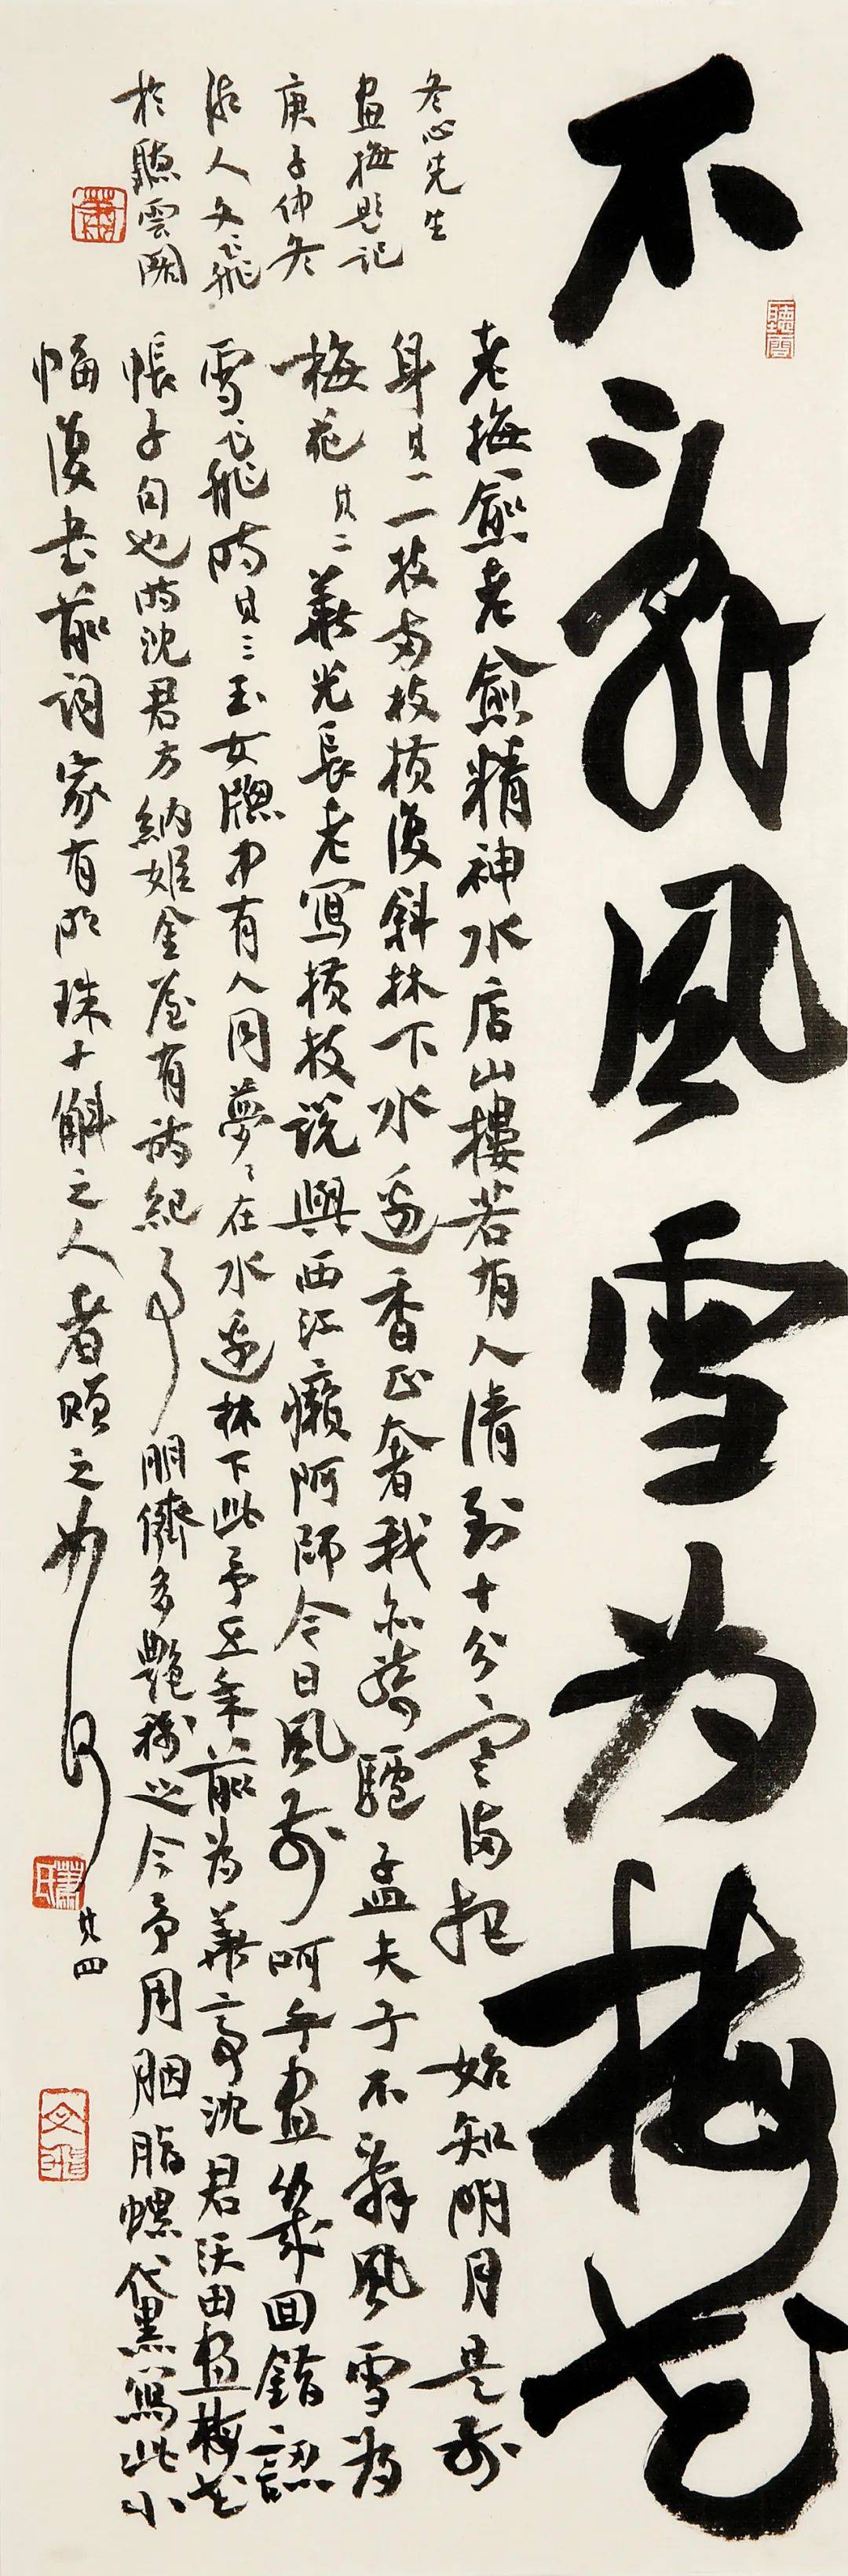 不辭風雪為梅花
聽雲
老梅愈老愈精神水店山樓若有人清到十分寒滿把始知明月是前
身其一一枝兩枝橫復斜林下水邊香正奢我亦騎驢孟夫子不辭風雪為
梅花其二華光長老寫橫枝說與西江癩阿師今日風前呵手畫幾回錯認
雪飛時其三玉女牕中有人同夢夢在水邊林下此予五年前為華亭沈君沃田畫梅花
帳子句也時沈君方納姬金屋有詩紀事朋儕多艷稱之今予用胭脂螺黛寫此小
幅復書前詞家有明珠十斛之人者贈之如何其四
冬心先生
畫梅題記
庚子仲冬
人文飛
於聽雲閣
蕭
蕭氏
文飛